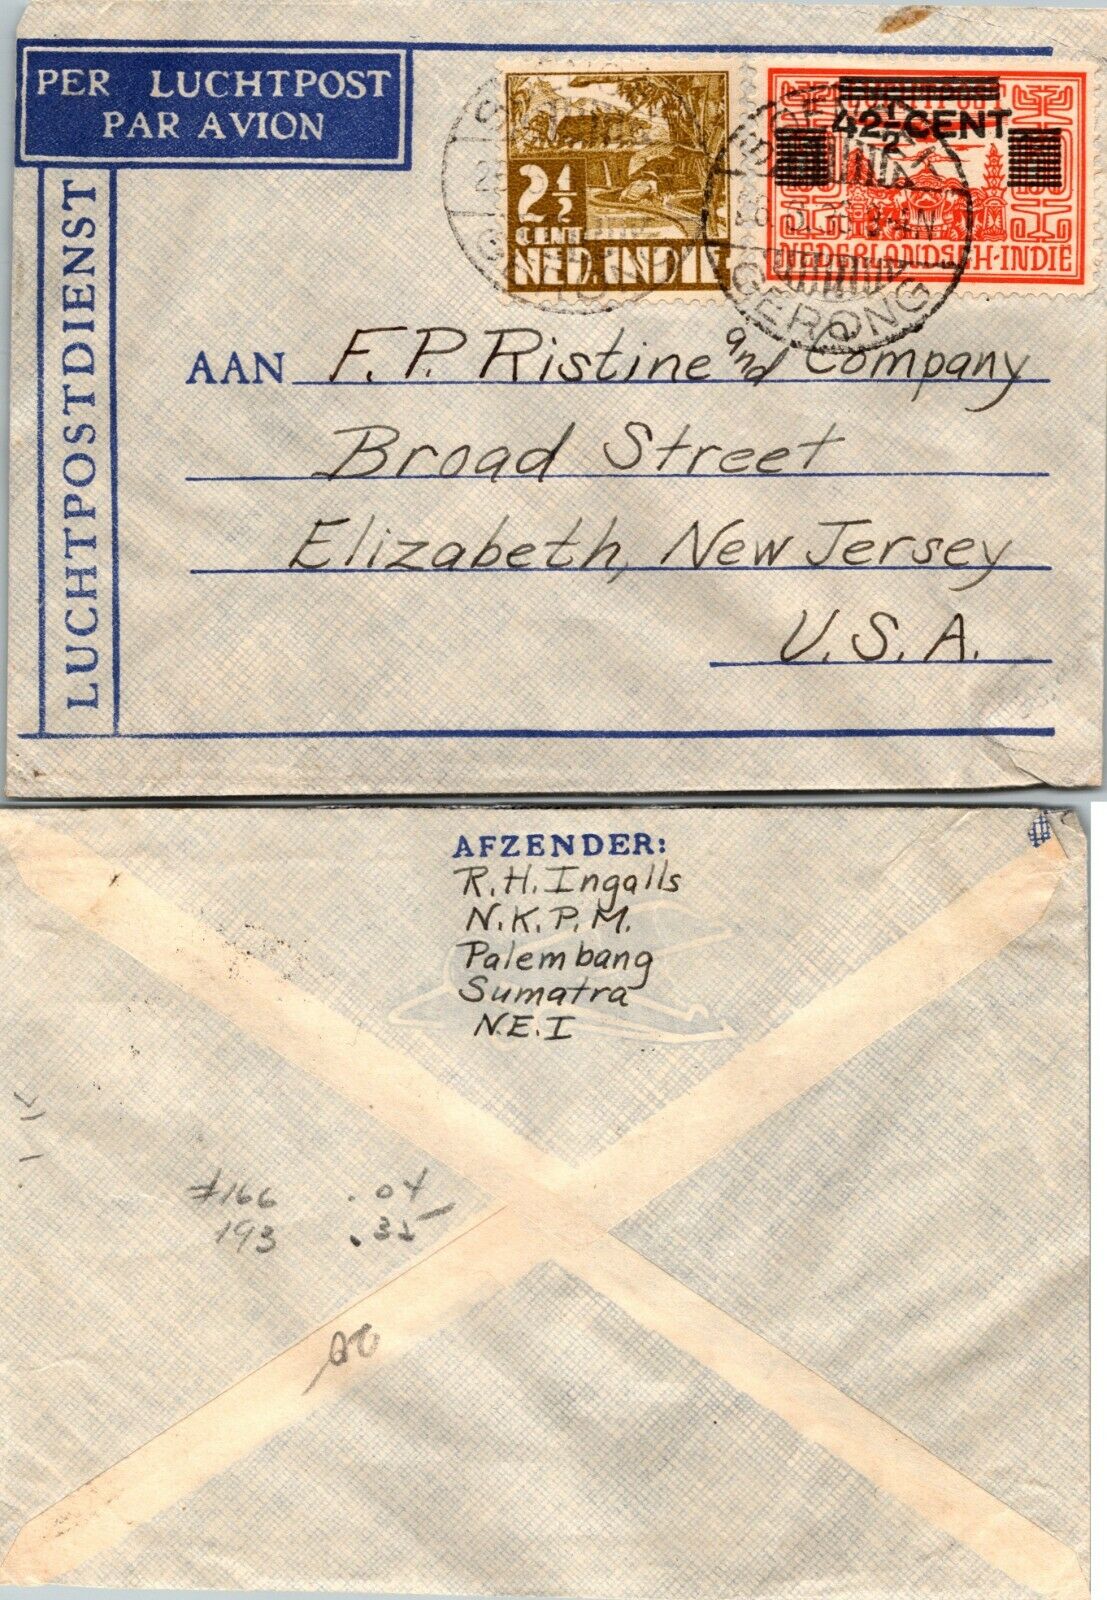 PER LUCHTPOST
PAR AVION
LUCHTPOSTDIENST
2½
CENT
NED. INDIE
LUCHTPOST
42½ CENT
NEDERLANDSCH-INDIE
SOENGEI
GERONG
AAN F. P. Ristine and Company
Broad Street
Elizabeth, New Jersey
U. S. A.
AFZENDER:
R. H. Ingalls
N. K. P. M.
Palembang
Sumatra
N. E. I
#166 .04
193